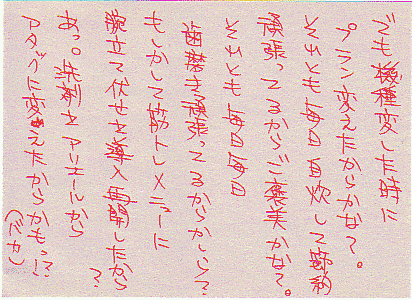 でも機種変した時に
プラン変えたからかな?。
それとも毎日自炊して節約
頑張ってるからご褒美かな?。
それとも毎日毎日
歯磨き頑張ってるからかしら?
もしかして筋トレメニューに
腕立て伏せを導入再開したから?
あっ。洗剤をアリエールから
アタックに変えたからかもっ!?
(バカ)